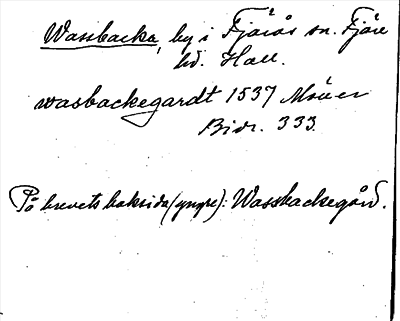 Wassbacka, by i Fjärås sn. Fjäre
hd. Hall.
wasbackegardt 1537 Möller
Bidr. 333.
På brevets baksida (yngre): Wassbackegård.